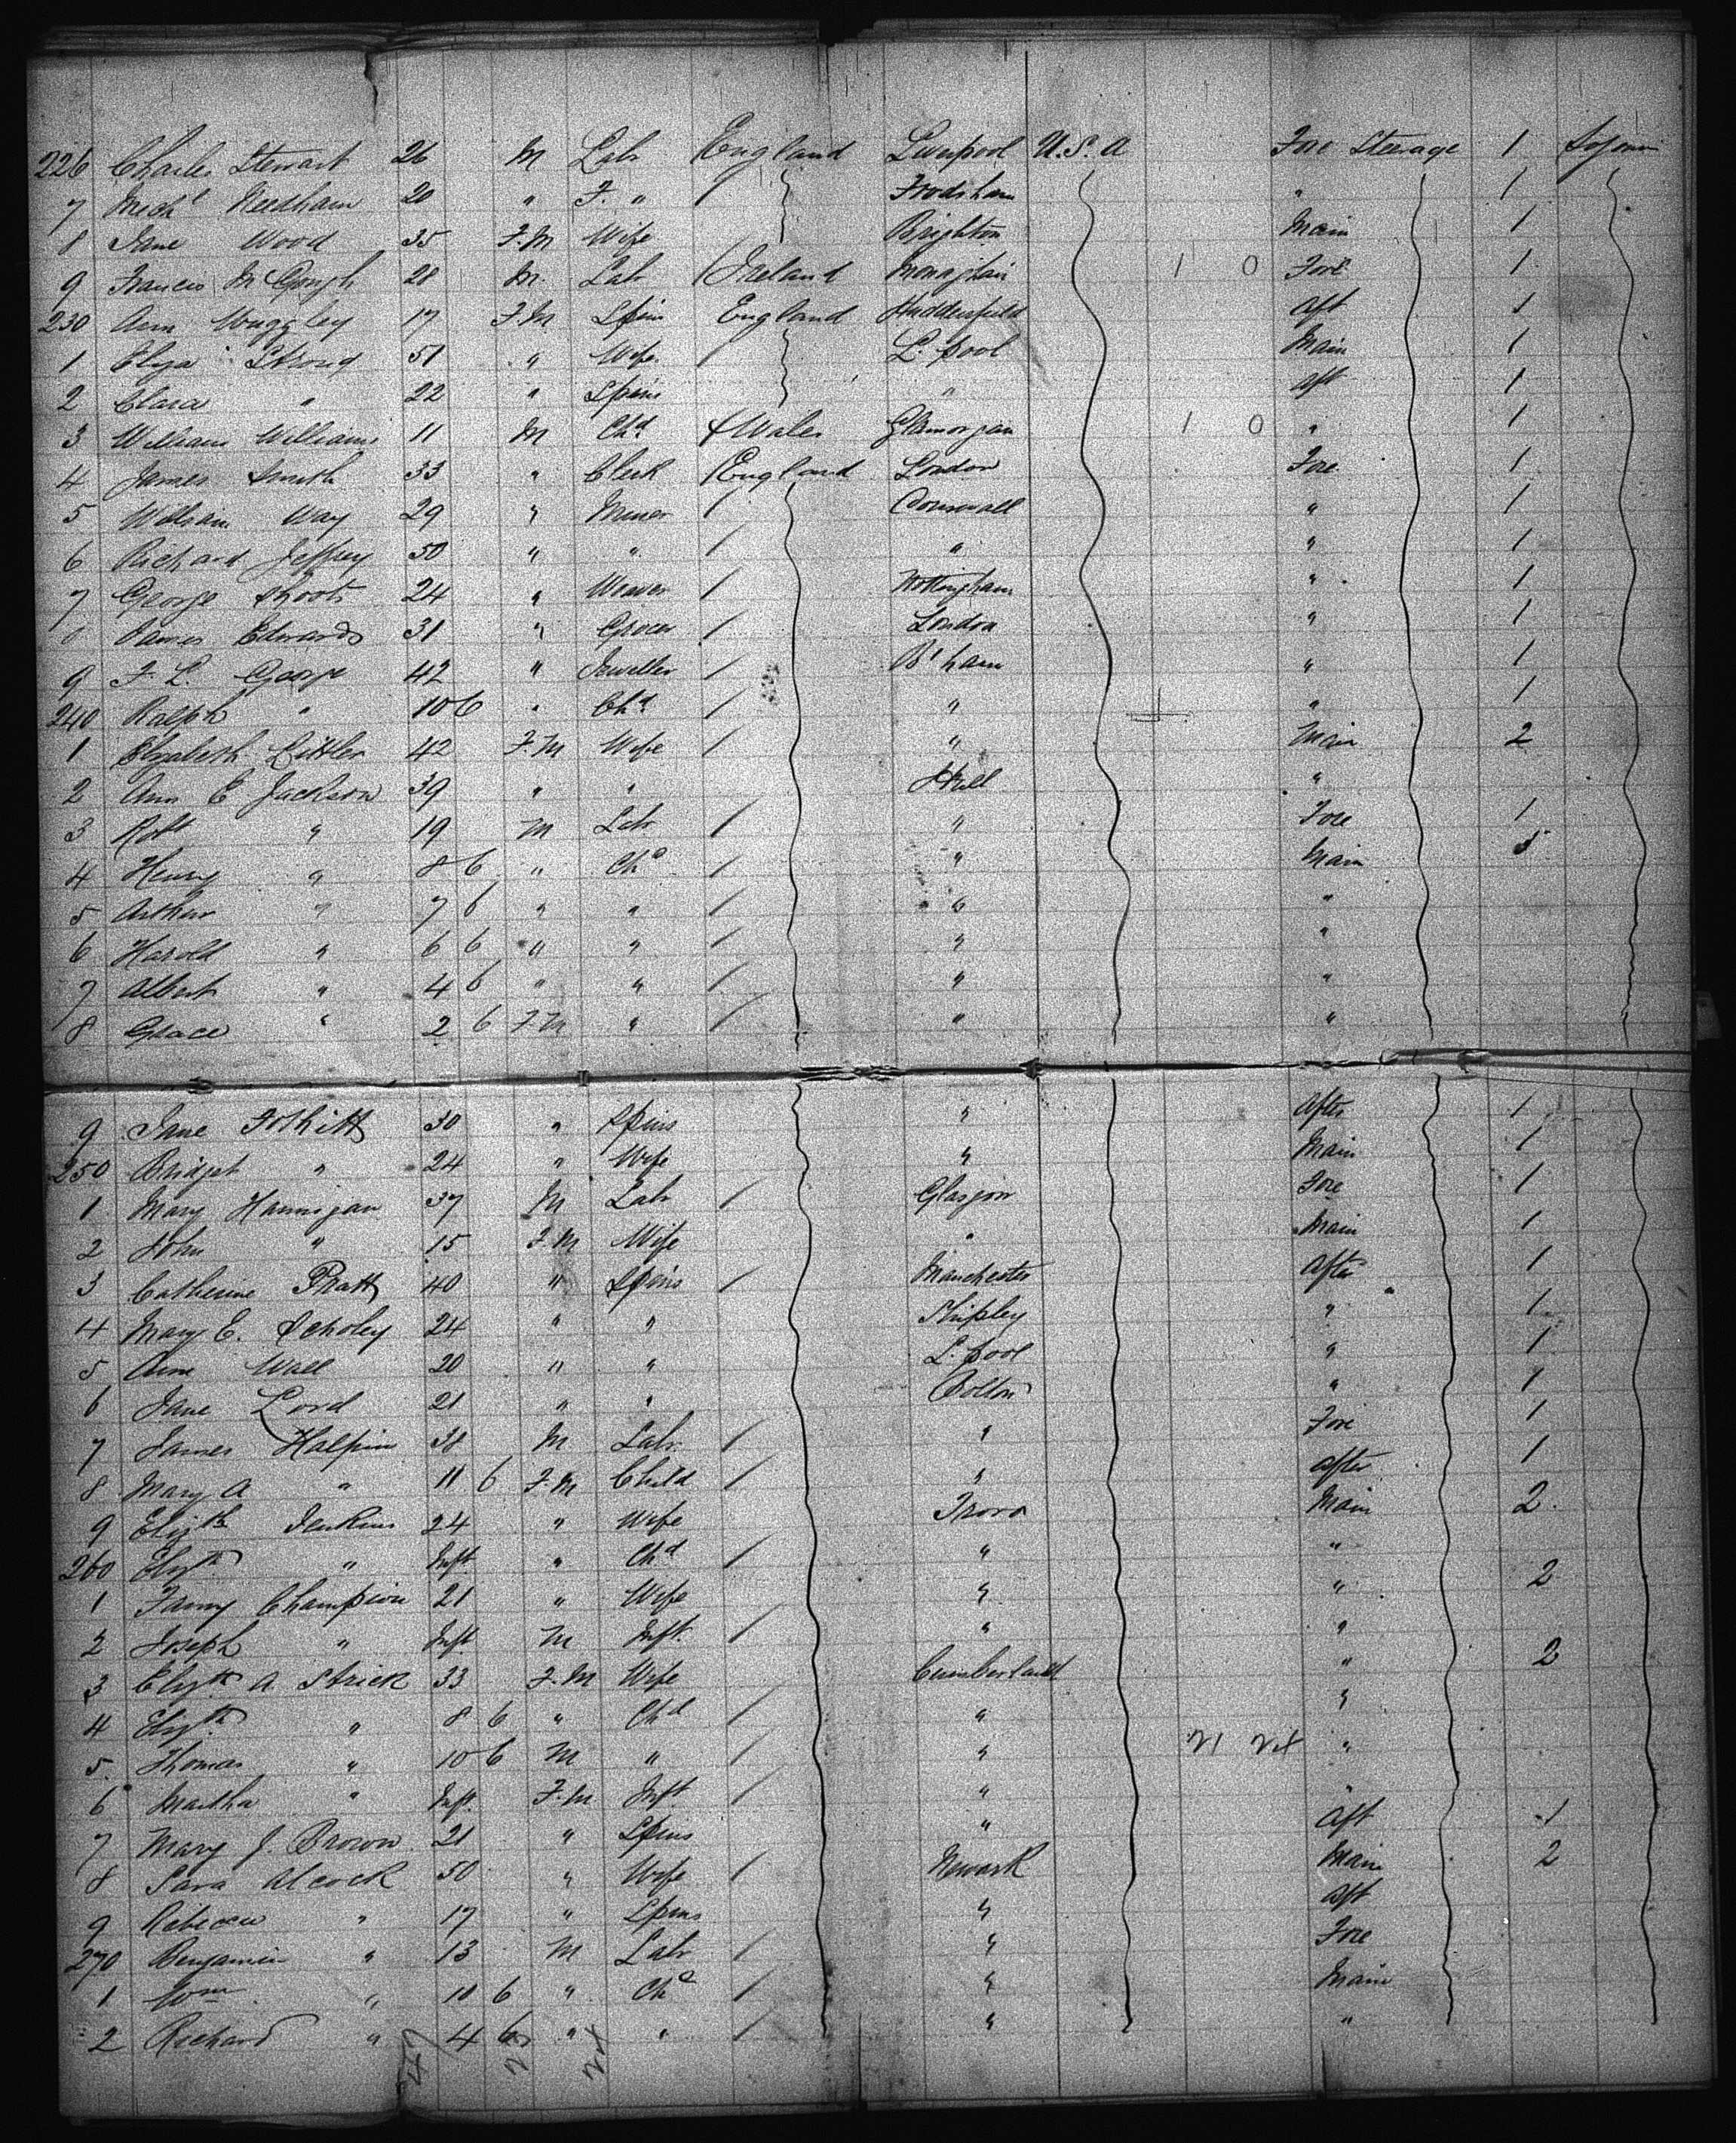 226 Charles Stewart 26 M Labr England Liverpool U.S.A Fore Steerage 1
7 Michl Needham 20 " F. " / Frodsham " 1
8 Jane Wood 35 F.M Wife Brighton Main 1
9 Francis McGough 28 M. Labr / Ireland Monaghan 1 0 Fore 1
230 Ann Waggley 17 F.M Spins England Huddersfield Aft 1
1 Eliza Strong 51 " Wife / L.pool Main 1
2 Clara " 22 " Spins " Aft 1
3 William Williams 11 M Chd Wales Glamorgan 1 0 " 1
4 James Smith 33 " Clerk / England London Fore 1
5 William Way 29 " Miner / Cornwall " 1
6 Richard Jeffrey 50 " " / " " 1
7 George Shoots 24 " Weaver / Nottingham " 1
8 James Edwards 31 " Grocer / London " 1
9 F. L. George 42 " Jeweller / B'ham " 1
240 Ralph " 10 6 " Chd / " " 1
1 Elizabeth Littler 42 F.M Wife / " Main 2
2 Ann E Jackson 39 " " Hull "
3 Robt " 19 M Labr / " Fore 1
4 Henry " 8 6 " Chd / " Main 5
5 Arthur " 7 6 " " / " "
6 Harold " 6 6 " " / " "
7 Albert " 4 6 " " / " "
8 Grace " 2 6 F.M " / " "
9 Jane 30 " Spins " After 1
250 Bridget " 24 " Wife " Main 1
1 Mary Hannigan 37 M Labr / Glasgow Fore 1
2 John " 15 F.M Wife " Main 1
3 Catherine Pratt 40 " Spins / Manchester After 1
4 Mary E. Scholey 24 " " Shipley " 1
5 Ann Wall 20 " " L.pool " 1
6 Jane Lord 21 " " Bolton " 1
7 James Halpin 38 M Labr / " Fore 1
8 Mary A " 11 6 F.M Child / " After 1
9 Elizth Jenkins 24 " Wife Truro Main 2
260 Elizth " Inft " Chd / " "
1 Fanny Champion 21 " Wife " " 2
2 Joseph " Inft M Inft. / " "
3 Elizth A Strick 33 F.M Wife Cumberland " 2
4 Elizth " 8 6 " Chd / " "
5 Thomas " 10 6 M " / " 21 24 "
6 Martha " Inft. F.M Inft. / " "
7 Mary J. Brown 21 " Spins " Aft 1
8 Sara Alcock 50 " Wife / Newark Main 2
9 Rebecca " 17 " Spins " Aft
270 Benjamin " 13 M Labr / " Fore
1 Wm " 10 6 " Chd / " Main
2 Richard " 4 6 " " / " "